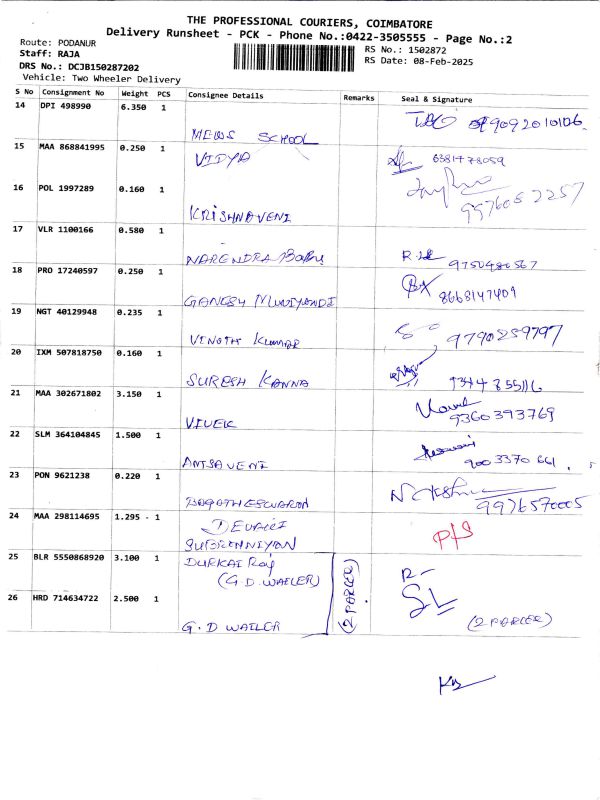 THE PROFESSIONAL COURIERS, COIMBATORE
Delivery Runsheet - PCK - Phone No.:0422-3505555 - Page No.:2
Route: PODANUR
RS No.: 1502872
Staff: RAJA
RS Date: 08-Feb-2025
DRS No.: DCJB150287202
Vehicle: Two Wheeler Delivery
S No Consignment No Weight PCS Consignee Details Remarks Seal & Signature
14 DPI 498990 6.350 1 MEWS SCHOOL 9092010106
15 MAA 868841995 0.250 1 VIDYA 6381478059
16 POL 1997289 0.160 1 KRISHNAVENI 9976052257
17 VLR 1100166 0.580 1 NARENDRA Babu 9750486567
18 PRO 17240597 0.250 1 GANESH MUNIYANDI 8668147409
19 NGT 40129948 0.235 1 VINOTH KUMAR 9790259797
20 IXM 507818750 0.160 1 SURESH KANNA
21 MAA 302671802 3.150 1 VIVEK 9360393769
22 SLM 364104845 1.500 1 9003370661
23 PON 9621238 0.220 1 9976570005
24 MAA 298114695 1.295 - 1 P/S
25 BLR 5550868920 3.100 1 DURKAI Raj
(G.D.WAILER) (2 PARCER)
26 HRD 714634722 2.500 1 G.D WAILER (2 PARCER)